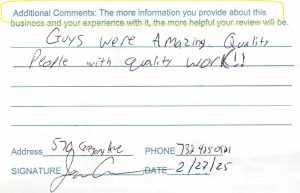 Additional Comments: The more information you provide about this
business and your experience with it, the more helpful your review will be.
Guys were Amazing Quality
People with quality work!!
Address Ave PHONE 732
SIGNATURE DATE 2/27/25